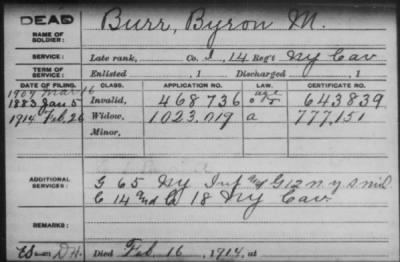 DEAD
NAME OF SOLDIER: Burr, Byron M.
SERVICE: Late rank, Co. I, 14 Reg't NY Cav
TERM OF SERVICE: Enlisted , 1 Discharged , 1
DATE OF FILING. CLASS. APPLICATION NO. LAW. CERTIFICATE NO.
1907 Mar 16 age
1883 Jan 5 Invalid, 468736 643839
1914 Feb. 26 Widow, 1023.019 a 777,151
Minor,
ADDITIONAL SERVICES: G 65 NY Inf and G 12 n.y.s mil
C 14 and 18 NY Cav
REMARKS:
Died Feb. 16, 1914, at